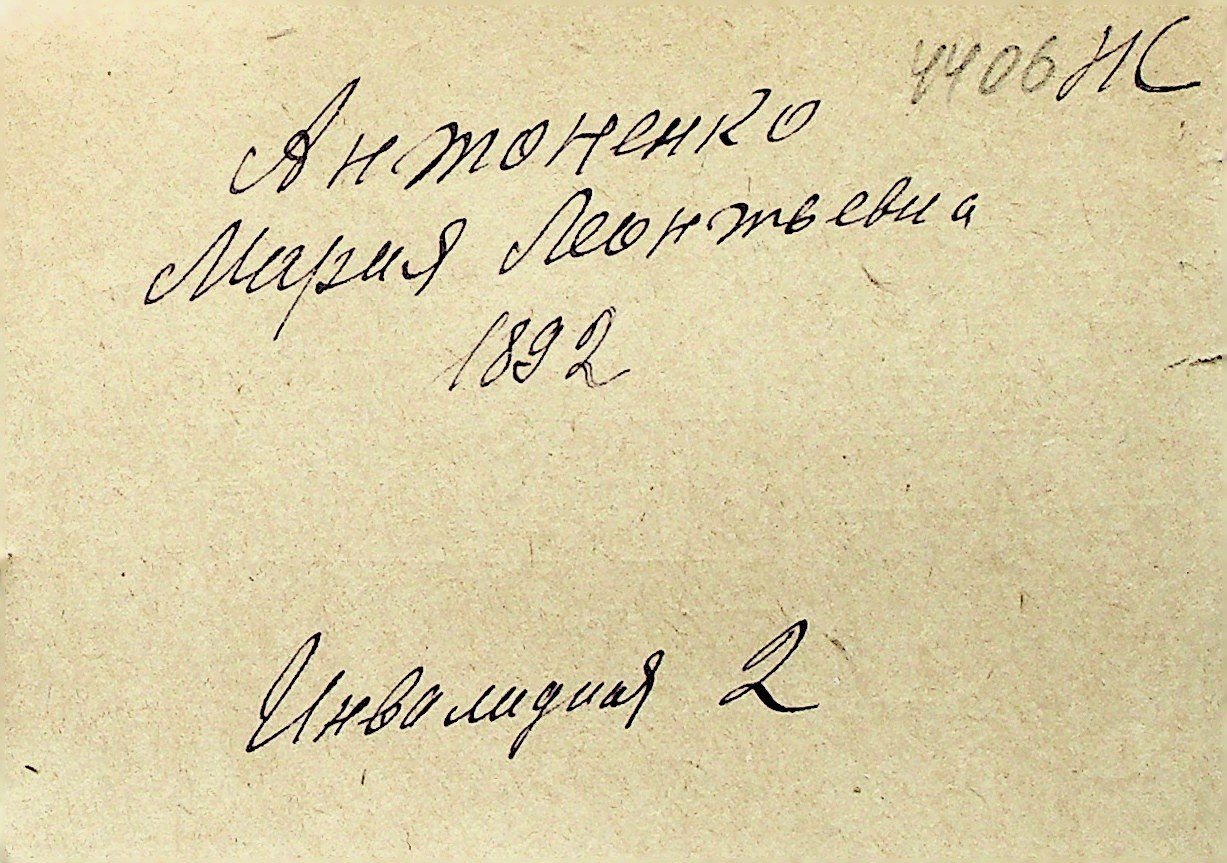 4406 НС
Антоненко
Мария Леонтьевна
1892
Инвалидная 2